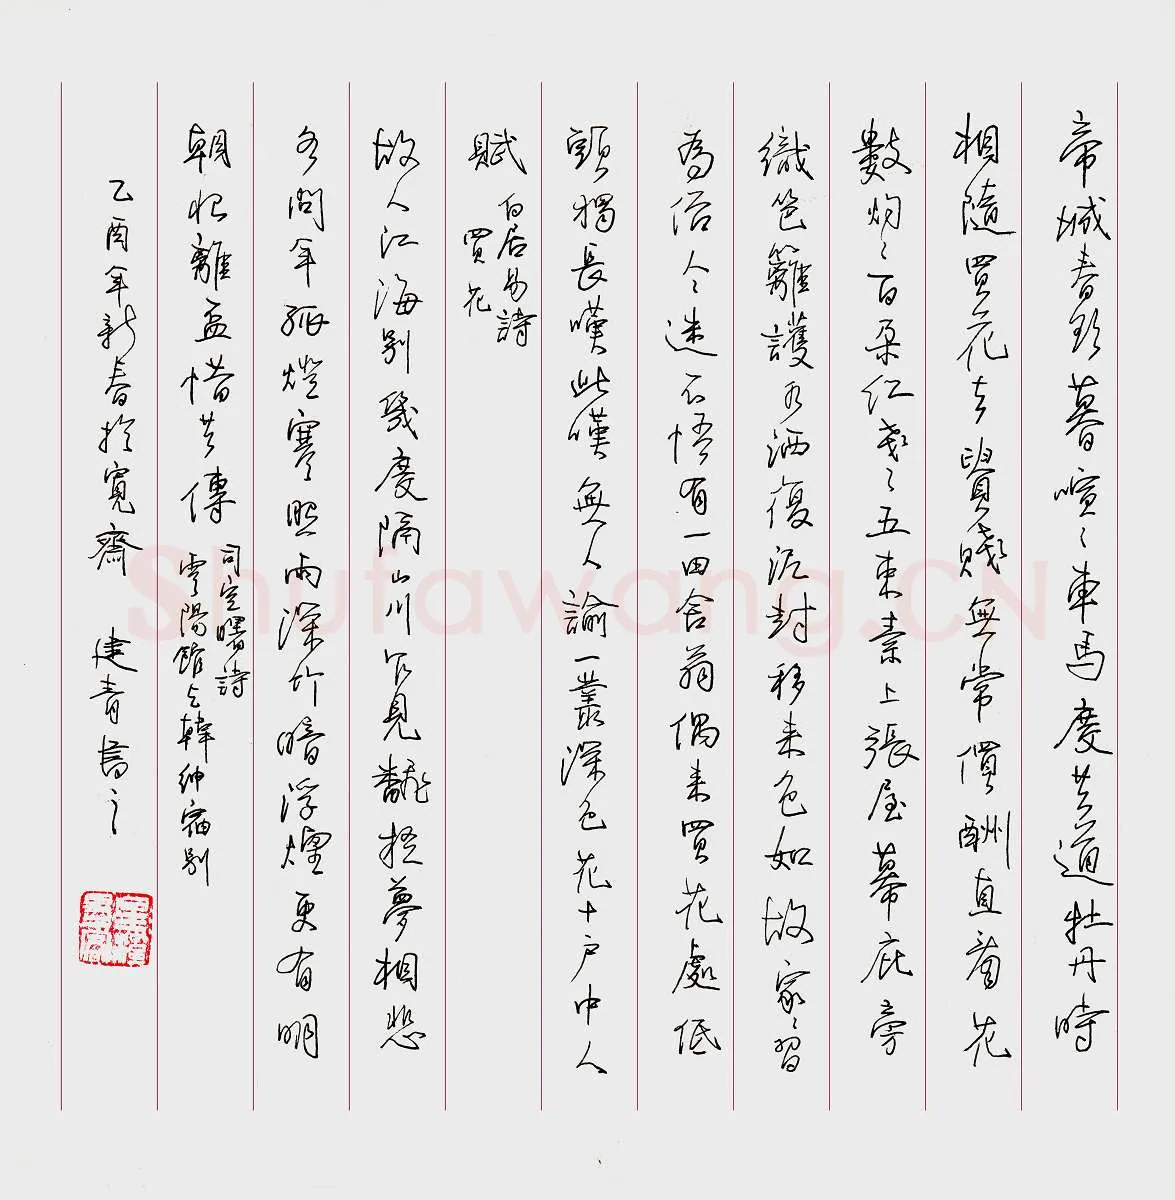 帝城春欲暮喧〻車馬度共道牡丹時
相隨買花去貴賤無常價酬直看花
數灼〻百朵紅戔〻五束素上張屋幕庇旁
織笆籬護水洒復泥封移来色如故家〻習
為俗人〻迷不悟有一田舍翁偶来買花處低
頭獨長嘆此嘆無人諭一叢深色花十戶中人
賦
白居易詩
買花
故人江海别幾度隔山川乍見翻疑夢相悲
各問年孤燈寒照雨深竹暗浮煙更有明
朝恨離盃惜共傳
司空曙詩
雲陽館与韓紳宿别
乙酉年新春於寬齋 建青書之
Shufawang.CN